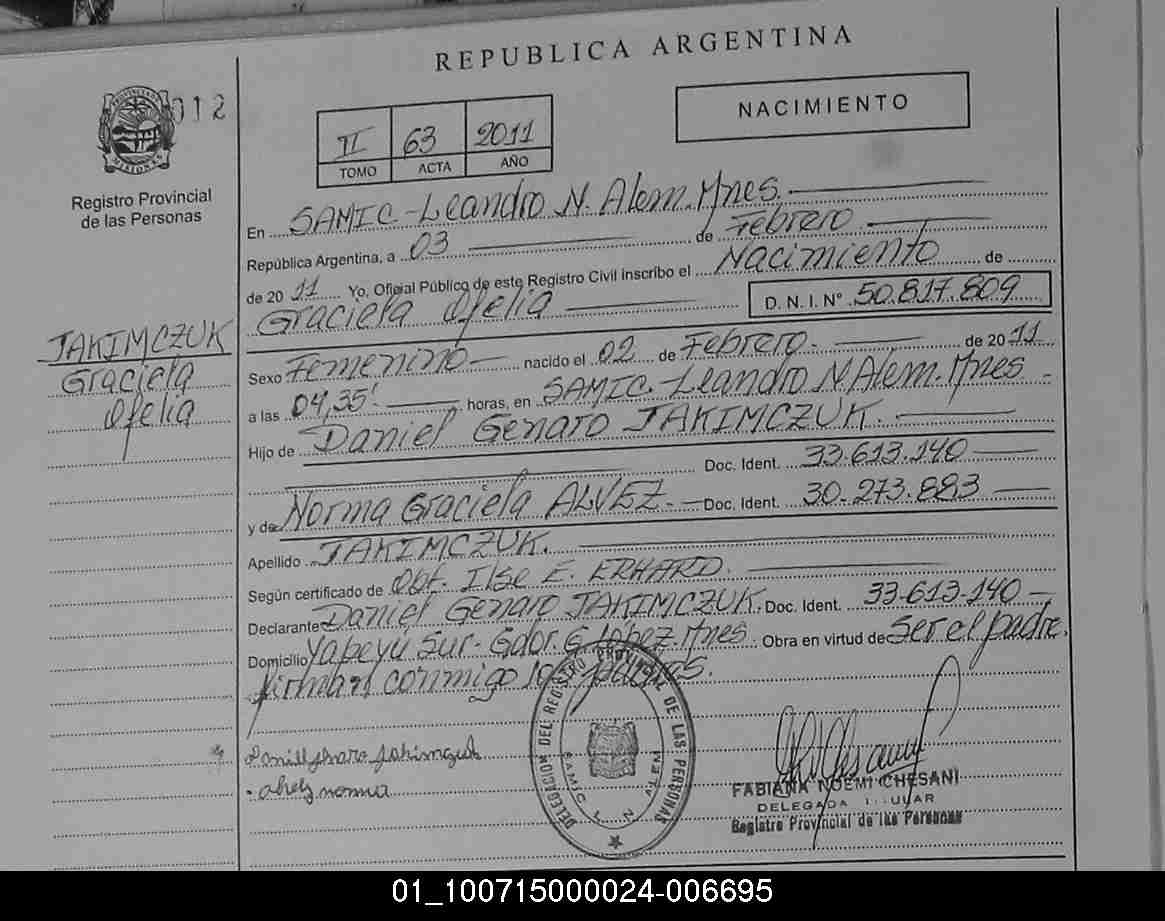 REPUBLICA ARGENTINA
PROVINCIA DE MISIONES
012
Registro Provincial
de las Personas
II 63 2011
TOMO ACTA AÑO
NACIMIENTO
En SAMIC - Leandro N. Alem. Mnes.
República Argentina, a 03 de Febrero
de 20 11 Yo, Oficial Público de este Registro Civil inscribo el Nacimiento de
Graciela Ofelia D. N. I. Nº 50.817.809
JAKIMCZUK
Graciela
Ofelia
Sexo Femenino nacido el 02 de Febrero. de 20 11
a las 04,35' horas, en SAMIC. Leandro N Alem. Mnes
Hijo de Daniel Genaro JAKIMCZUK.
Doc. Ident. 33.613.140
y de Norma Graciela ALVEZ. Doc. Ident. 30.273.883
Apellido JAKIMCZUK.
Según certificado de Obt. Ilse E. ERHARD.
Declarante Daniel Genaro JAKIMCZUK. Doc. Ident. 33.613.140
Domicilio Yapeyú Sur - Gdor. G. Lopez. Mnes. Obra en virtud de Ser el padre.
firman conmigo los padres.
Daniel Genaro Jakimczuk
alvez norma
DELEGACION DEL REGISTRO PROVINCIAL DE LAS PERSONAS
SAMIC L N
FABIANA NOEMI CHESANI
DELEGADA TITULAR
Registro Provincial de las Personas
01_100715000024-006695